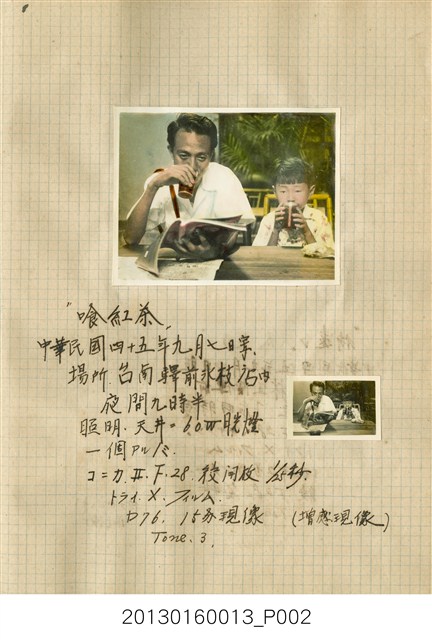 "喰紅茶"
中華民國四十五年九月七日寫
場所.台南驛前氷枝店内
夜間九時半
照明.天井=60W 螢燈
一個アルノミ
コニカ.Ⅱ.F.28.校開放 1/5秒.
トライ.X.フィルム.
D76. 15分現像 (增感現像)
Tone. 3.
20130160013_P002